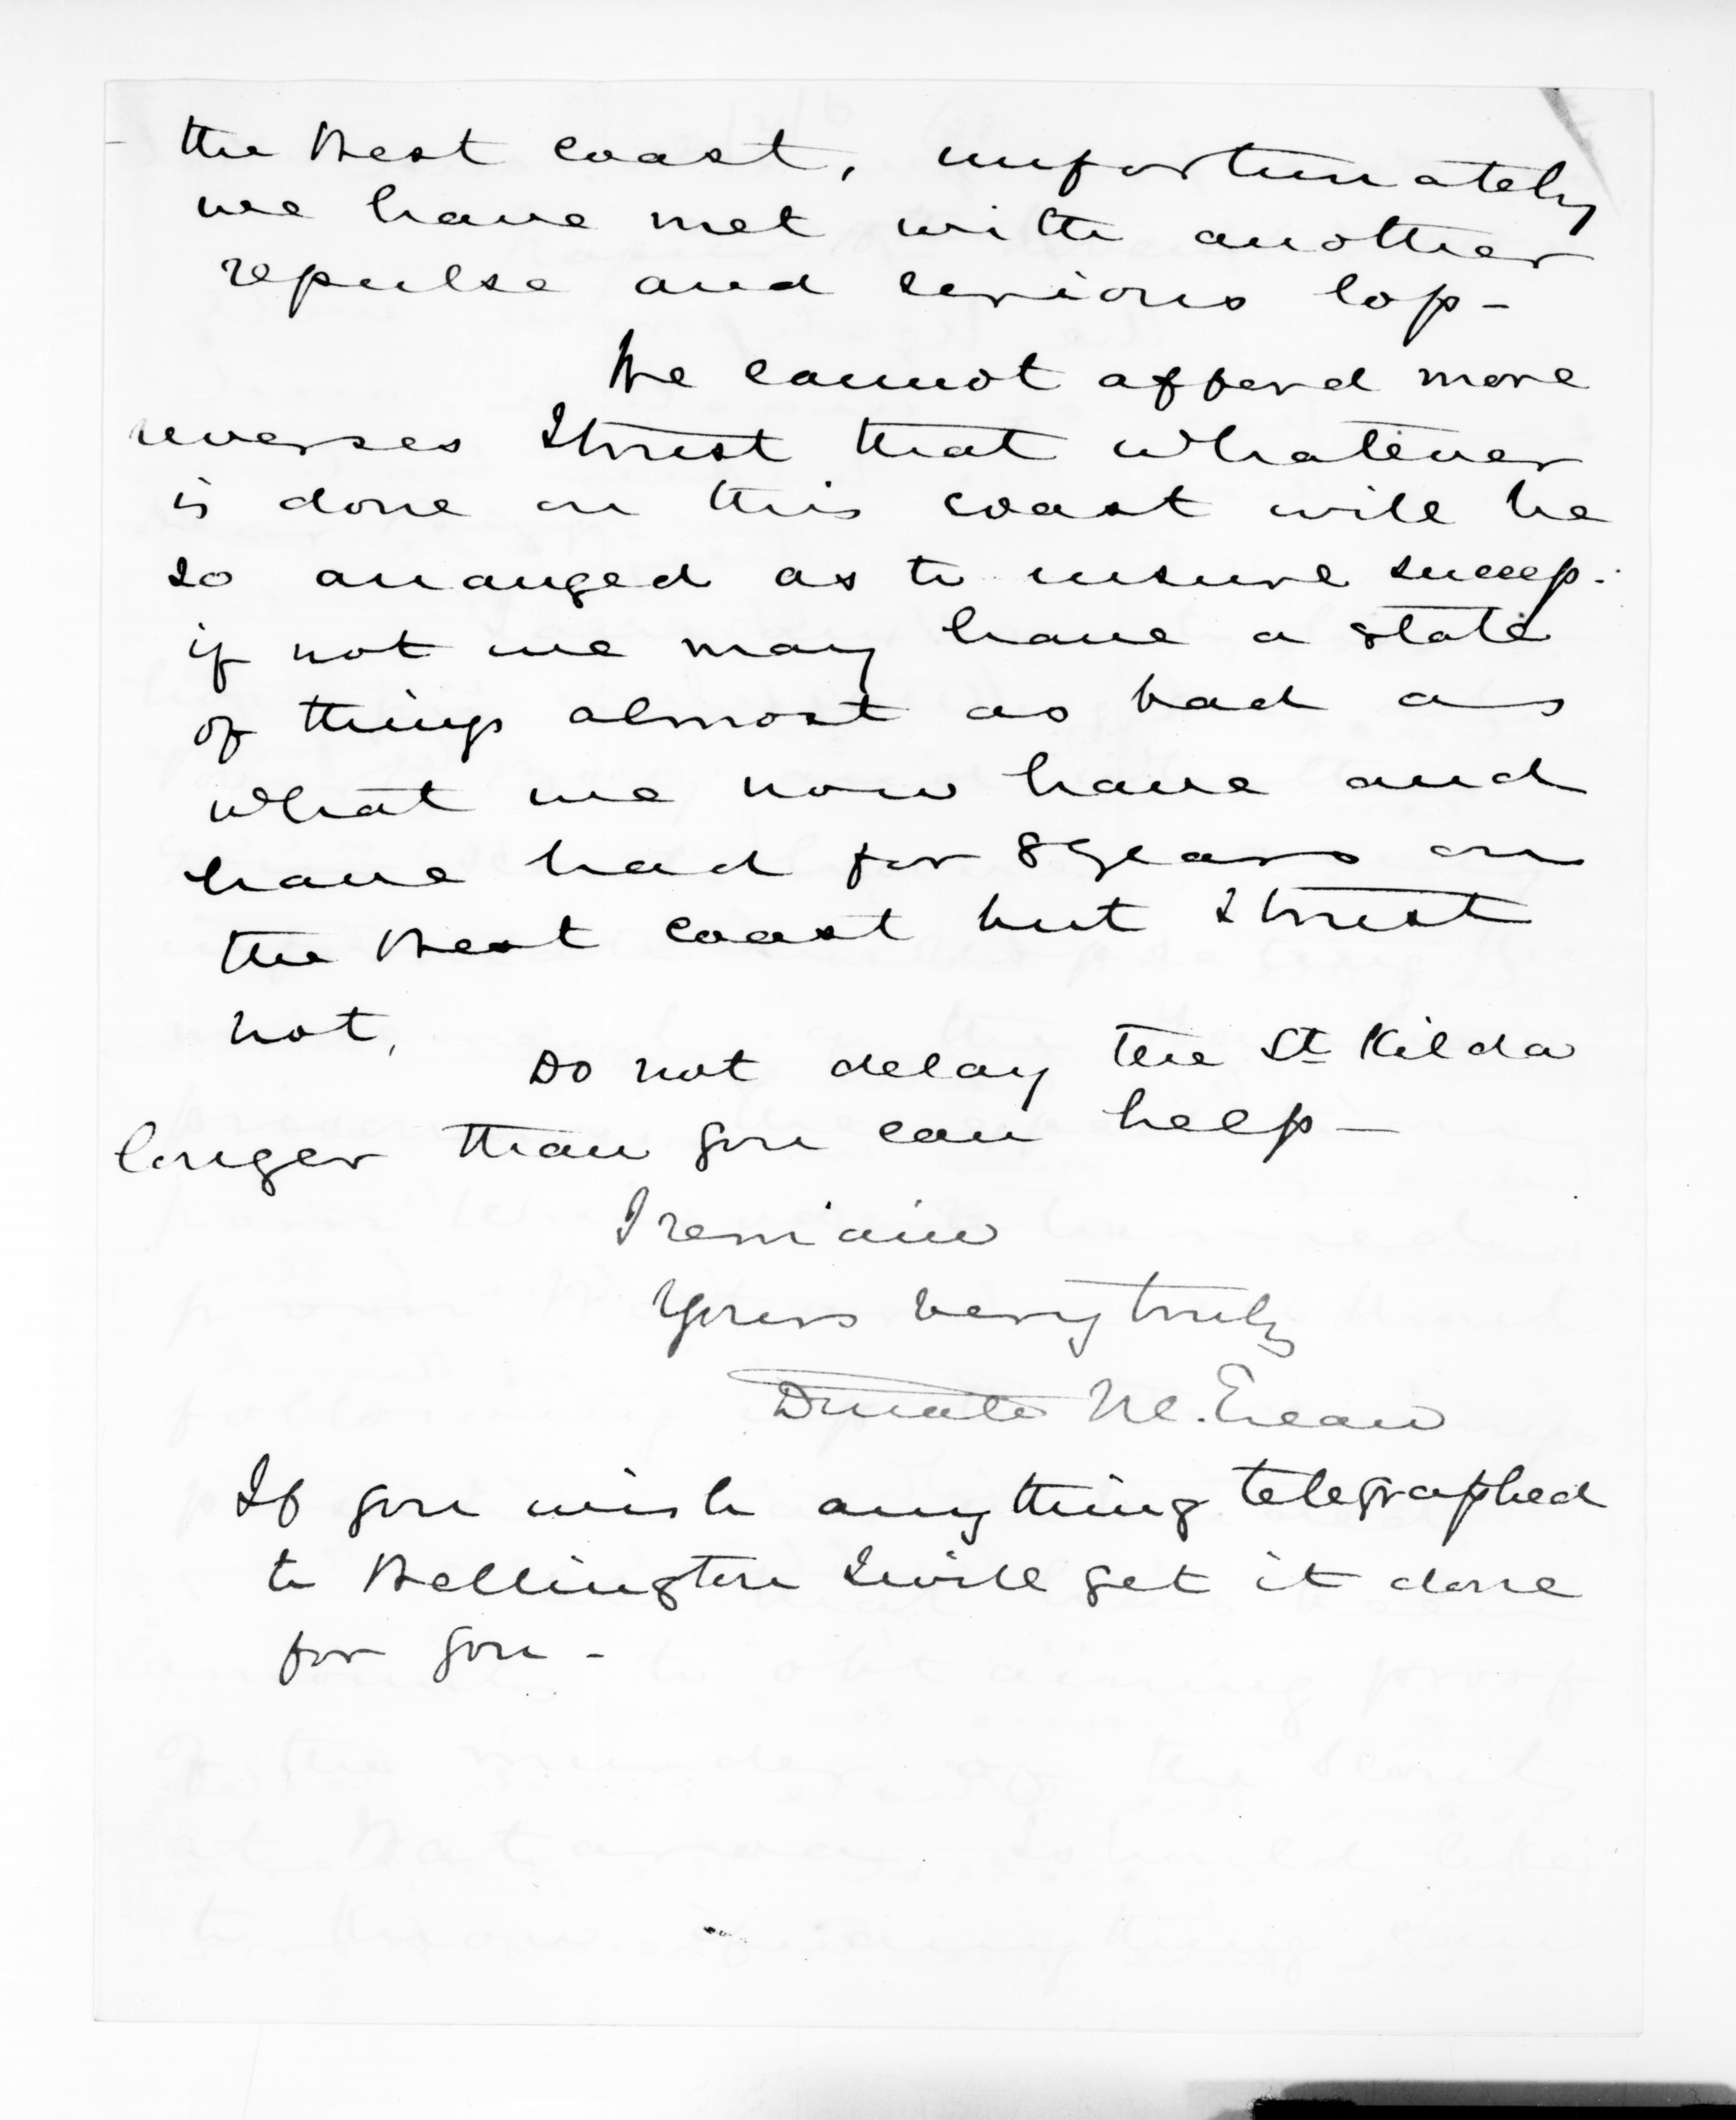 the West Coast, unfortunately
we have met with another
repulse and serious loss -
We cannot afford more
reverses I trust that whatever
is done on this coast will be
so arranged as to insure success.
if not we may have a state
of things almost as bad as
what we now have and
have had for 8 years on
the West Coast but I trust
not.
Do not delay the St Kilda
longer than you can help -
I remain
Yours very truly
Donald McLean
If you wish anything telegraphed
to Wellington I will get it done
for you -